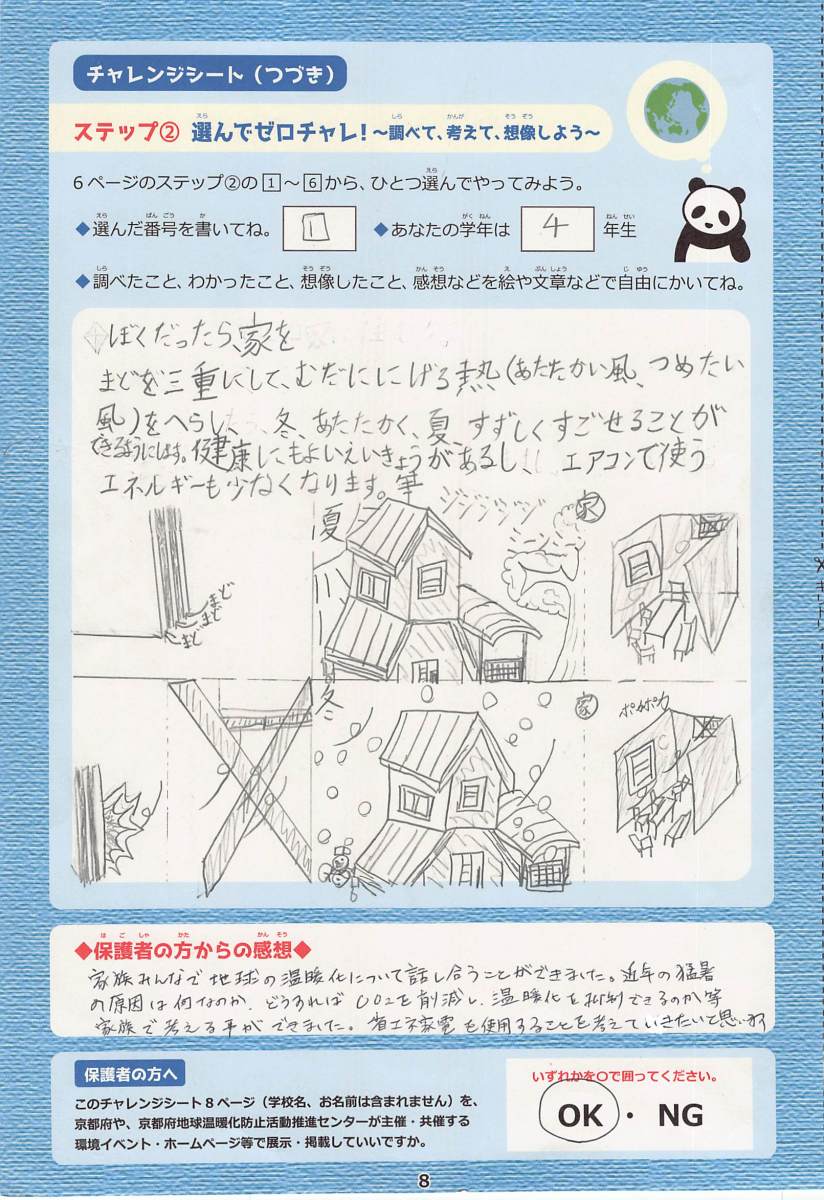 チャレンジシート（つづき）
ステップ② 選んでゼロチャレ！～調べて、考えて、想像しよう～
6ページのステップ②の1～6から、ひとつ選んでやってみよう。
◆選んだ番号を書いてね。 1 ◆あなたの学年は 4 年生
◆調べたこと、わかったこと、想像したこと、感想などを絵や文章などで自由にかいてね。
ぼくだったら、家を
まどを三重にして、むだににげる熱(あたたかい風、つめたい
風)をへらし、冬、あたたかく、夏、すずしくすごせることが
できるようにします。健康にもよいえいきょうがあるし、エアコンで使う
エネルギーも少なくなります。
夏 ジジジジジジ 家
まど
まど
まど
冬 家 ポカポカ
◆保護者の方からの感想◆
家族みんなで地球の温暖化について話し合うことができました。近年の猛暑
の原因は何なのか、どうすればCO2を削減し、温暖化を抑制できるのか等
家族で考える事ができました。省エネ家電を使用することを考えていきたいと思います
保護者の方へ
いずれかを○で囲ってください。
このチャレンジシート8ページ（学校名、お名前は含まれません）を、
京都府や、京都府地球温暖化防止活動推進センターが主催・共催する
環境イベント・ホームページ等で展示・掲載していいですか。
OK ・ NG
8